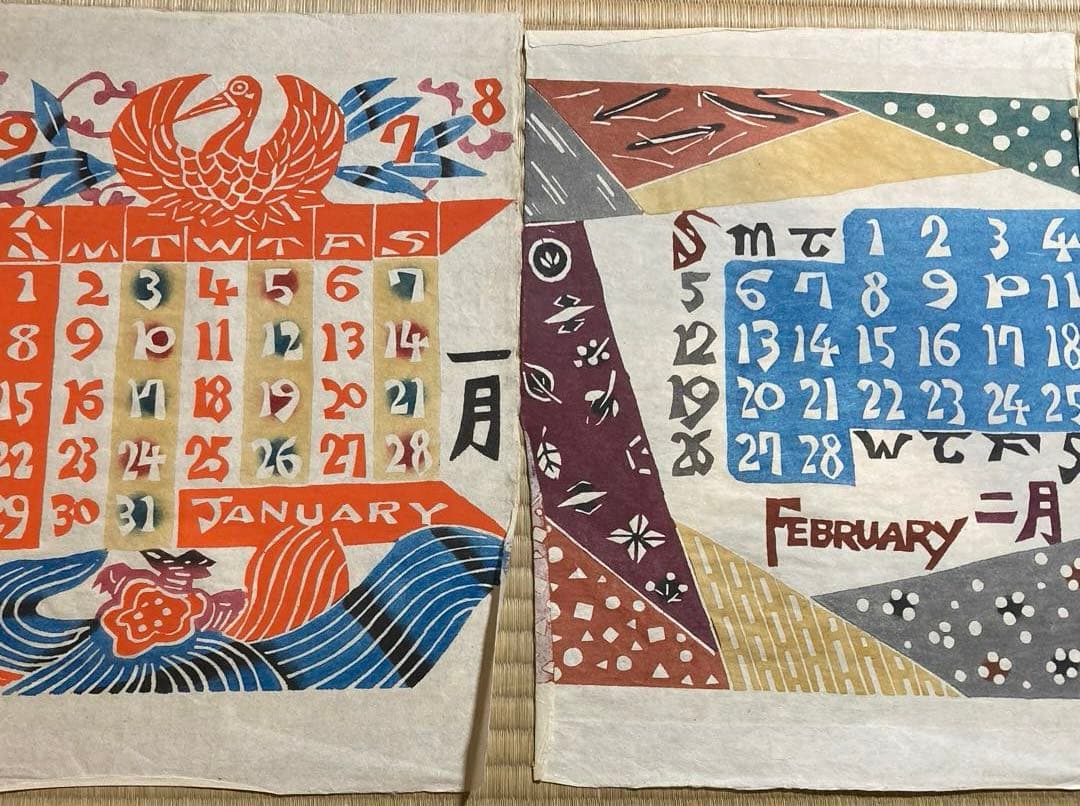 9 7 8
S M T W T F S
1 2 3 4 5 6 7
8 9 10 11 12 13 14
15 16 17 18 19 20 21
22 23 24 25 26 27 28
29 30 31 JANUARY
一月
S M T 1 2 3 4
5 6 7 8 9 10 11
12 13 14 15 16 17 18
19 20 21 22 23 24 25
26 27 28 W T F S
FEBRUARY 二月